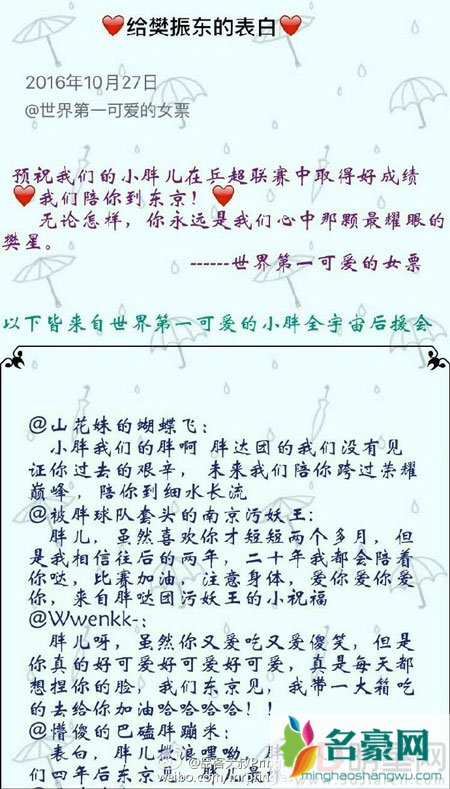 ❤给樊振东的表白❤
2016年10月27日
@世界第一可爱的女票
预祝我们的小胖儿在乒超联赛中取得好成绩
❤我们陪你到东京!❤
无论怎样,你永远是我们心中那颗最耀眼的
樊星。
------世界第一可爱的女票
以下皆来自世界第一可爱的小胖全宇宙后援会
@山花妹的蝴蝶飞:
小胖我们的胖啊 胖达团的我们没有见
证你过去的艰辛, 未来我们陪你跨过荣耀
巅峰,陪你到细水长流
@被胖球队套头的南京污妖王:
胖儿,虽然喜欢你才短短两个多月,但
是我相信往后的两年,二十年我都会陪着
你哒,比赛加油,注意身体,爱你爱你爱
你,来自胖哒团污妖王的小祝福
@Wwenkk-:
胖儿呀,虽然你又爱吃又爱傻笑,但是
你真的好可爱好可爱好可爱,真是每天都
想捏你的脸,我们东京见,我带一大箱吃
的去给你加油哈哈哈哈!!
@懵俊的巴磕胖蹦米:
表白,胖儿撒浪嘿呦,胖
们四年后东京见,胖儿最
weibo.com/
名豪网
minghaoshangwu.com